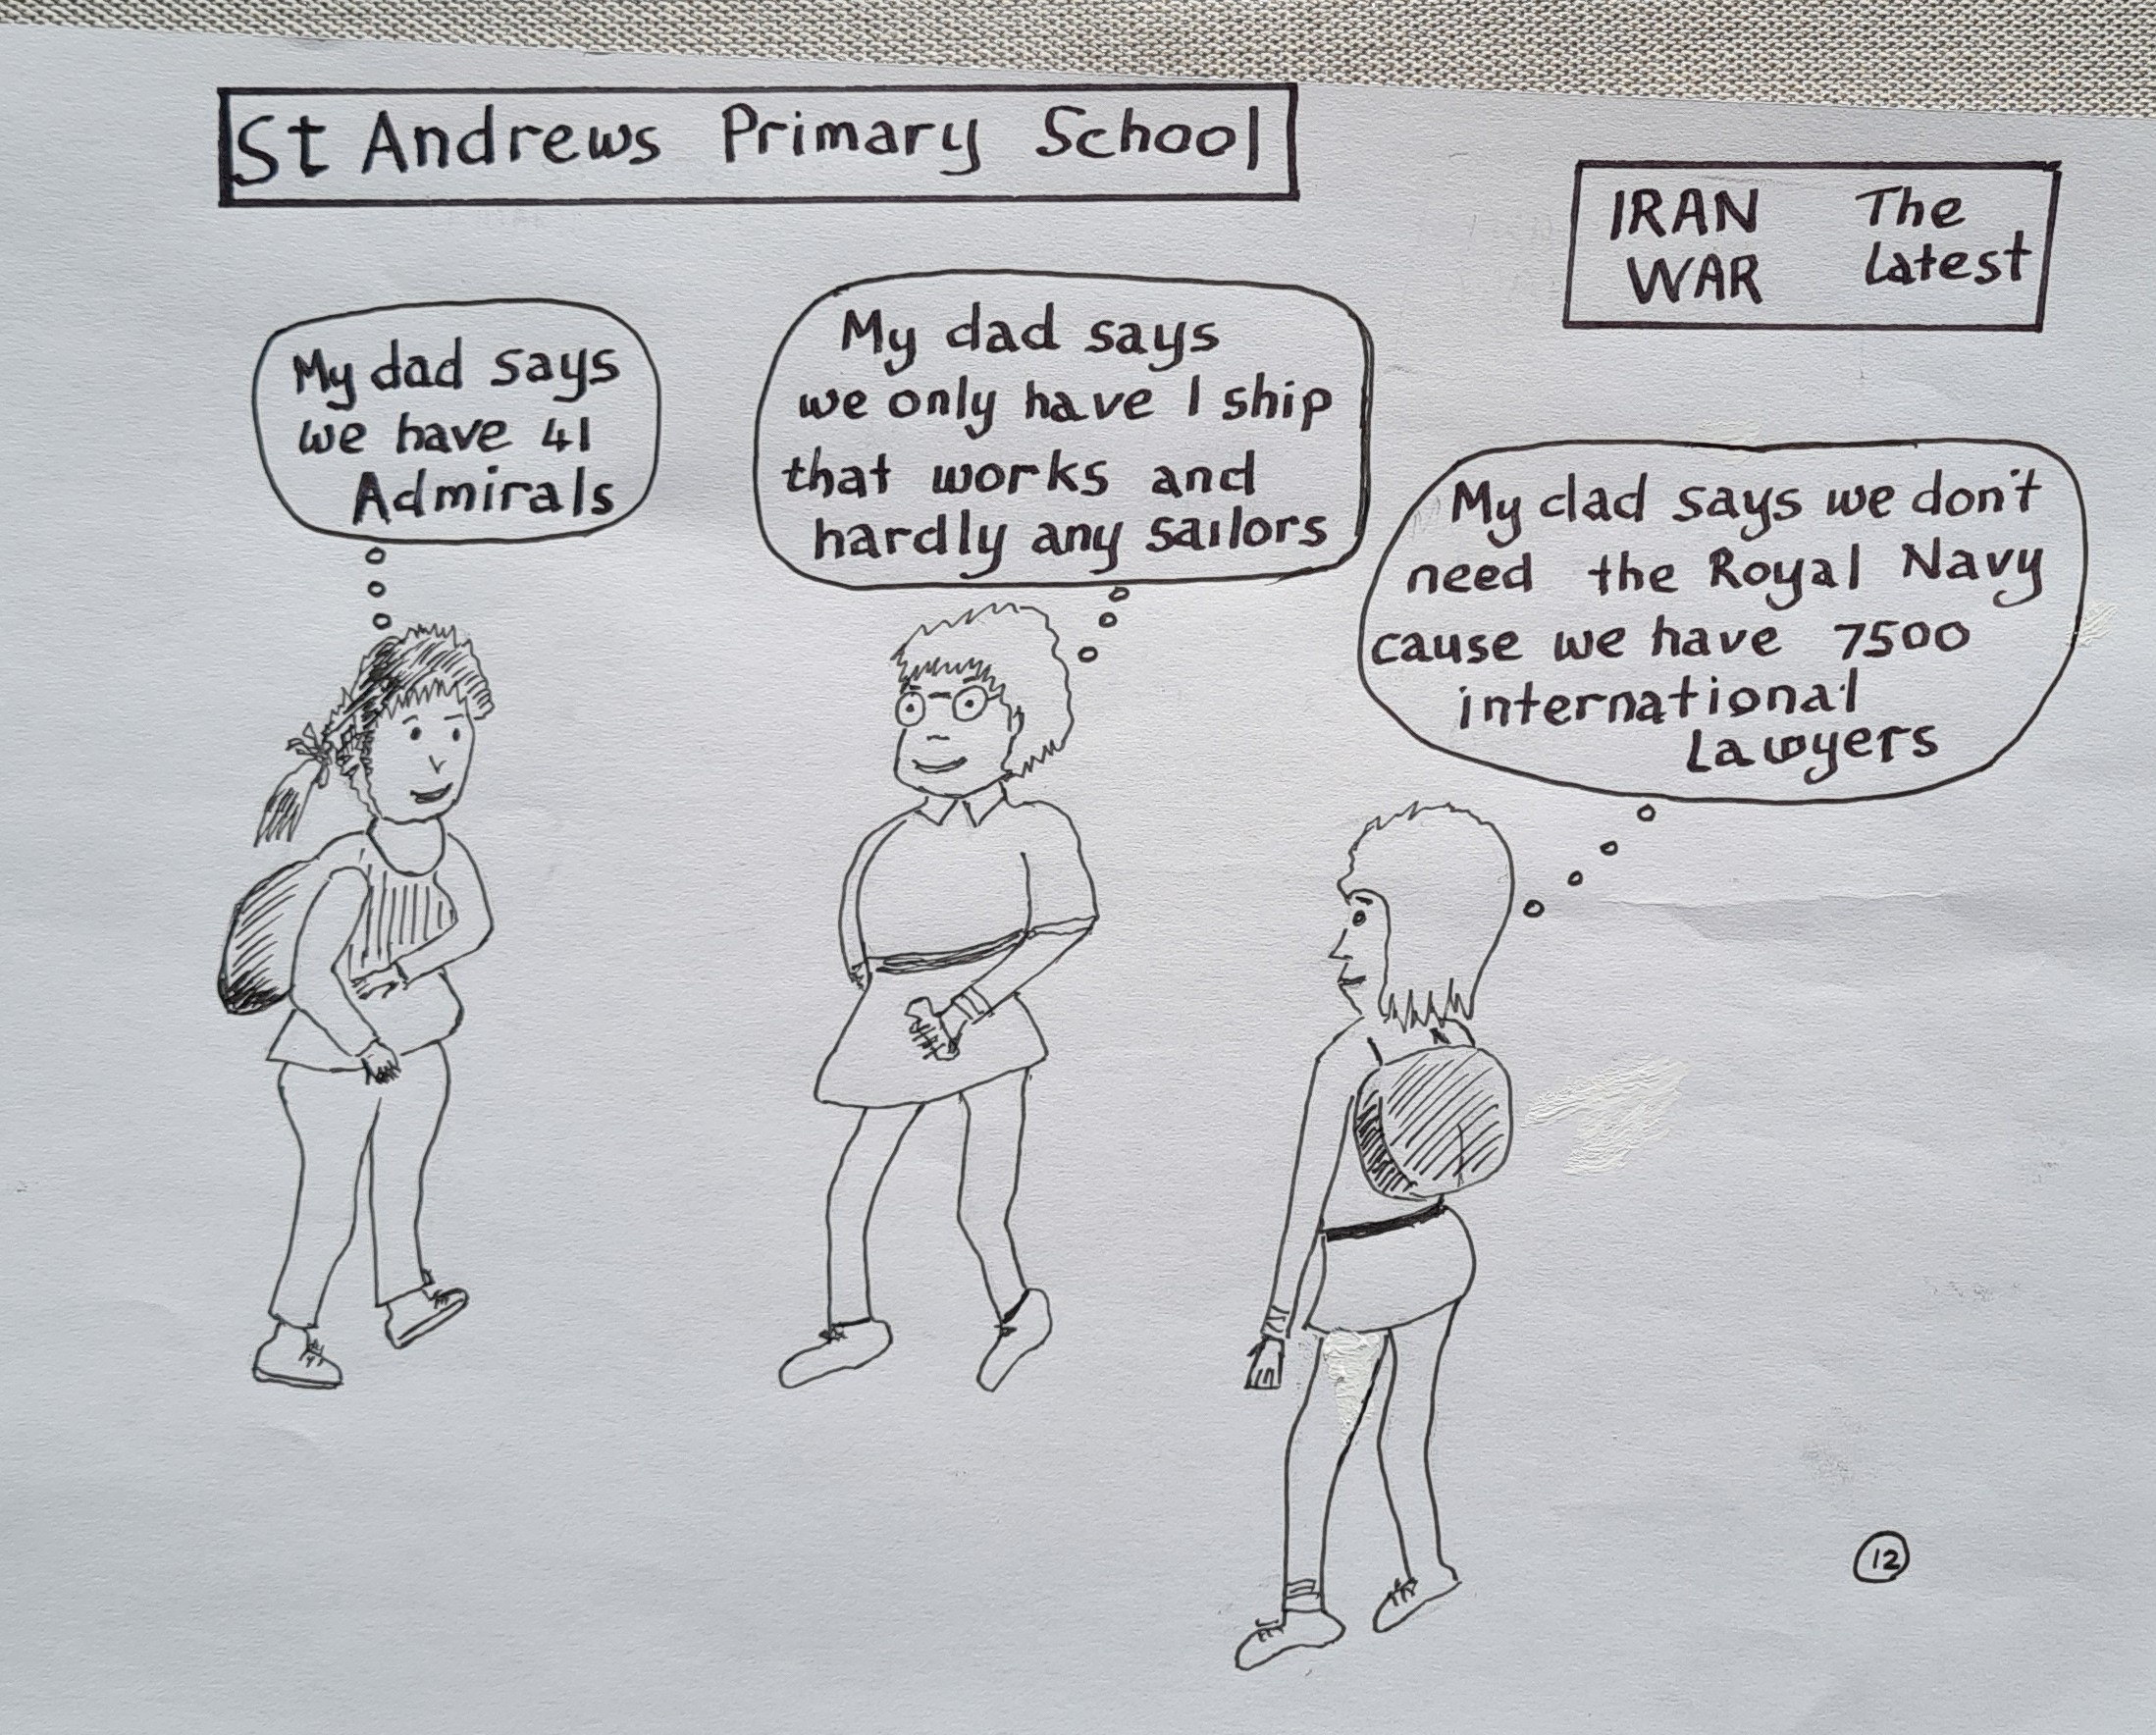 St Andrews Primary School
IRAN The
WAR Latest
My dad says
we have 41
Admirals
My dad says
we only have 1 ship
that works and
hardly any sailors
My dad says we don't
need the Royal Navy
cause we have 7500
international
Lawyers
12